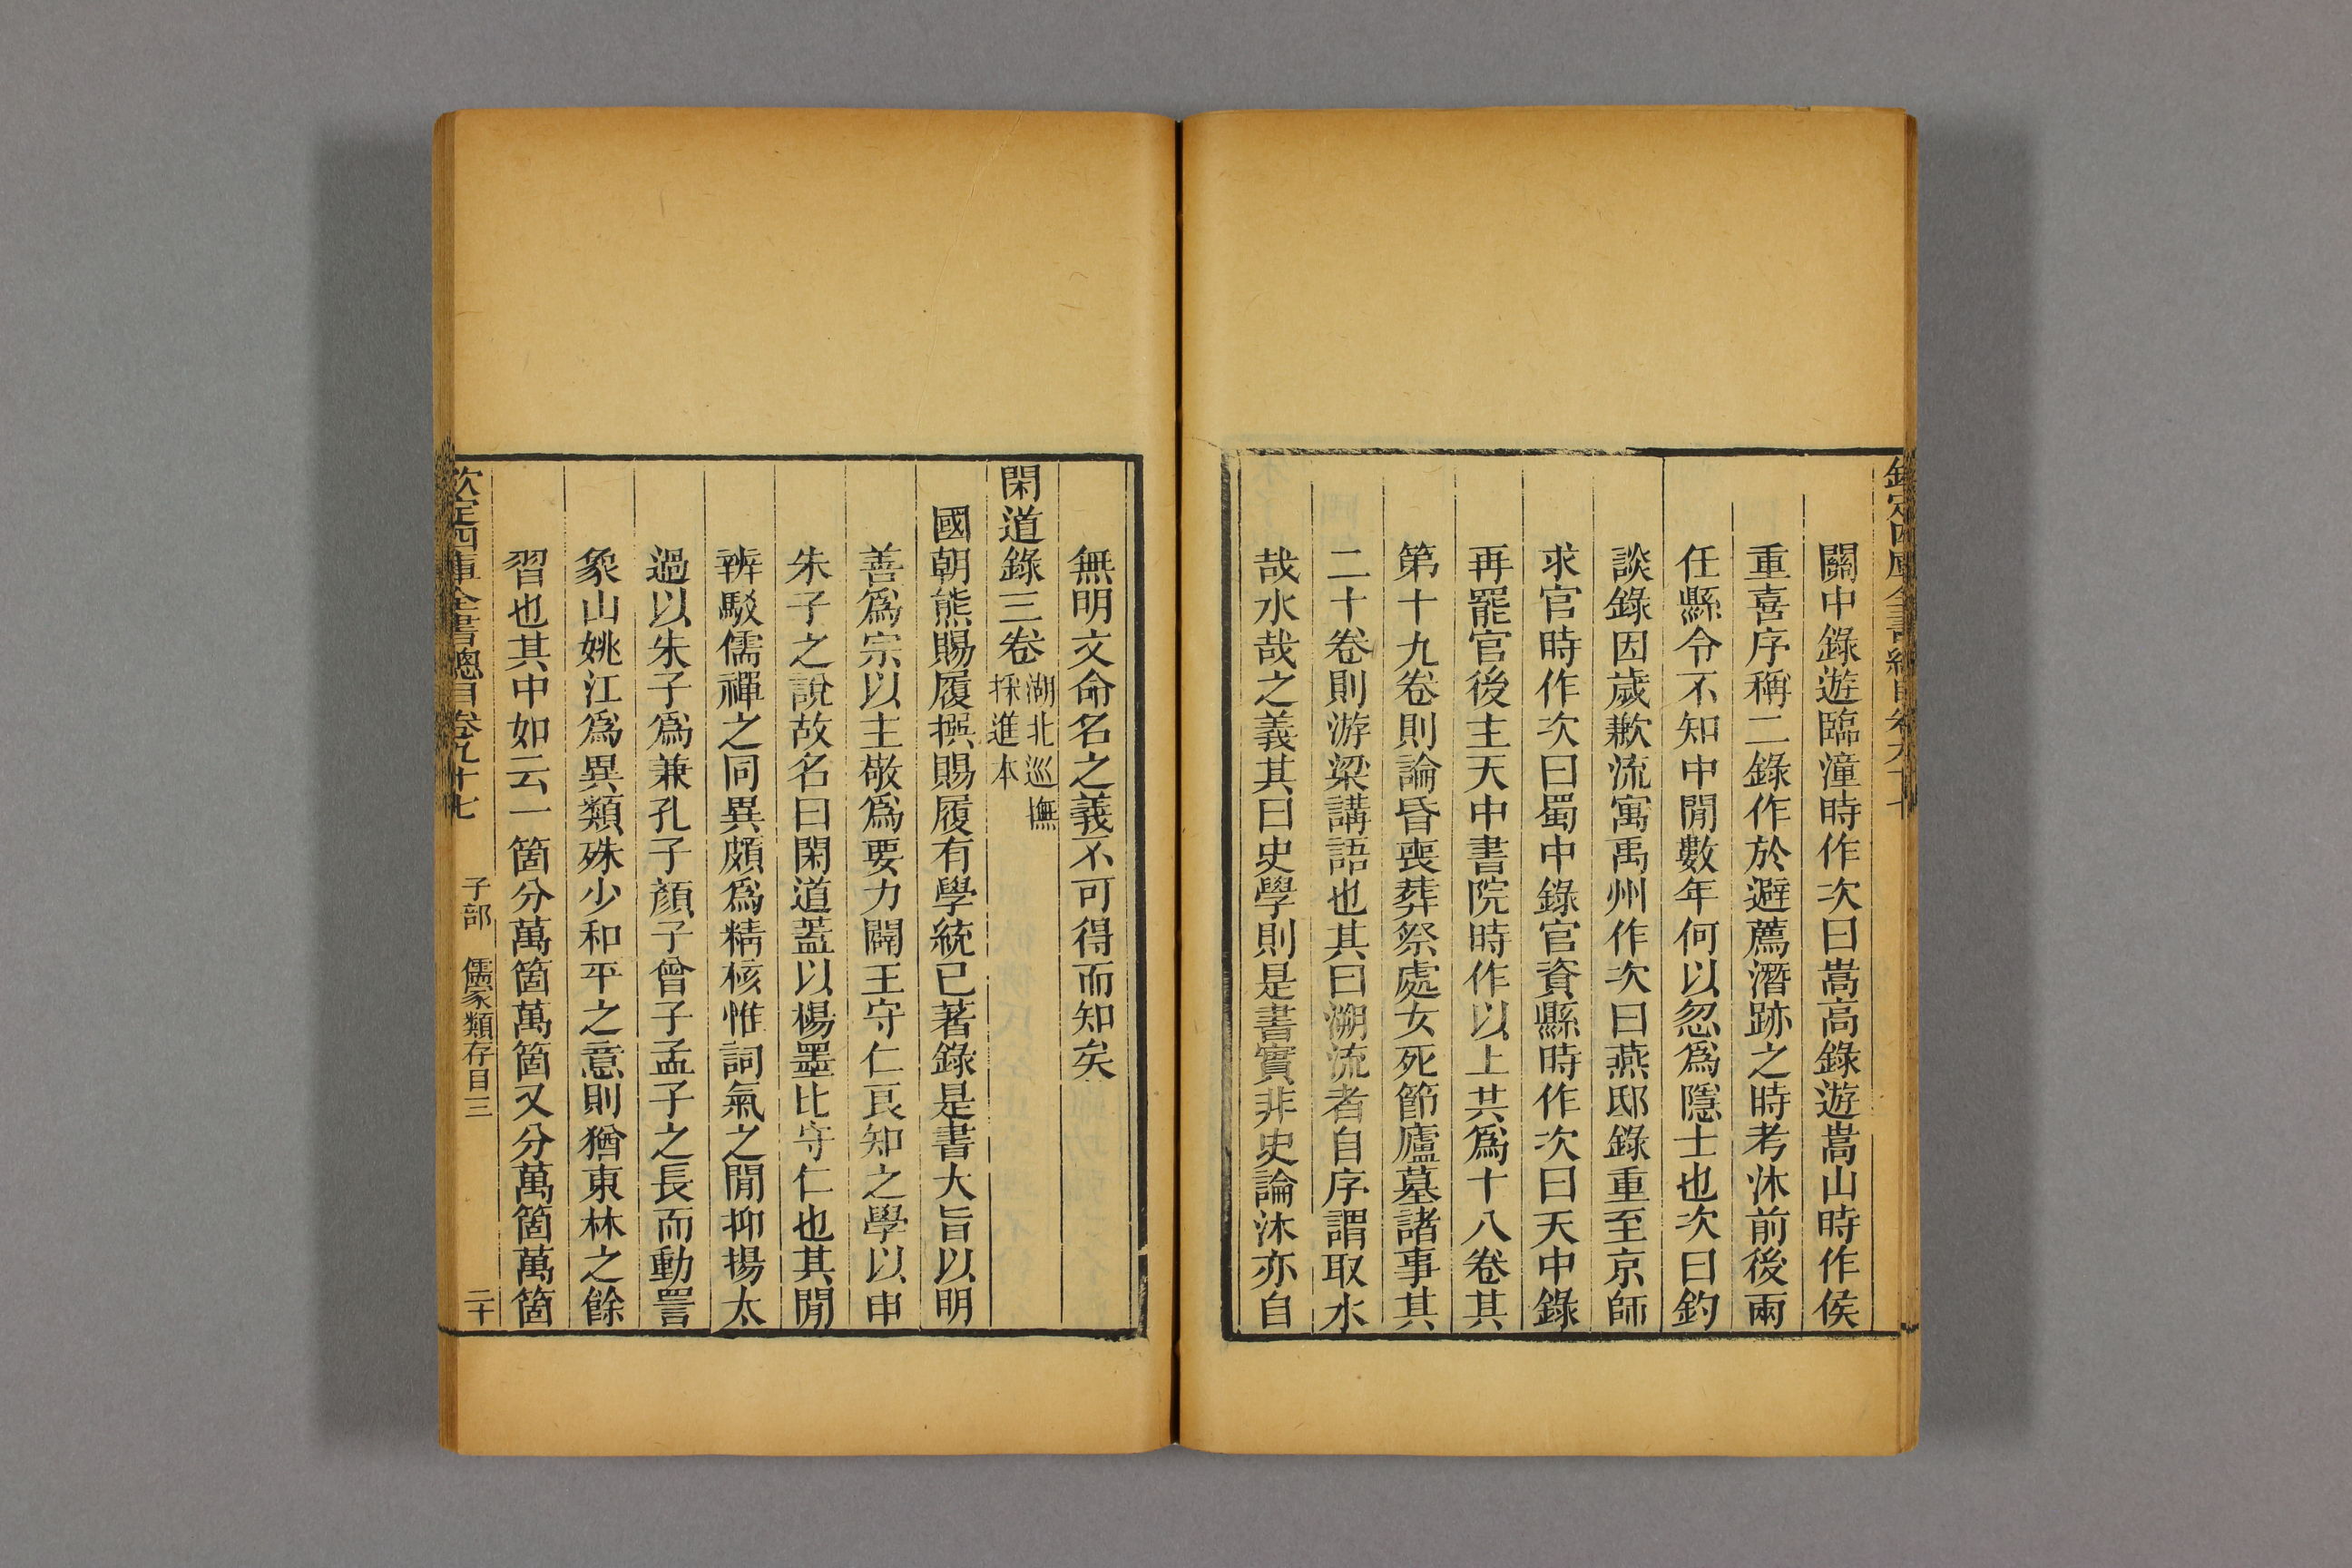 關中錄遊臨潼時作次曰嵩高錄遊嵩山時作侯
重喜序稱二錄作於避薦潛跡之時考沐前後兩
任縣令不知中閒數年何以忽爲隱士也次曰釣
談錄因歲歉流寓禹州作次曰燕邸錄重至京師
求官時作次曰蜀中錄官資縣時作次曰天中錄
再罷官後主天中書院時作以上共爲十八卷其
第十九卷則論昏喪葬祭處女死節廬墓諸事其
二十卷則游梁講語也其曰溯流者自序謂取水
哉水哉之義其曰史學則是書實非史論沐亦自
無明文命名之義不可得而知矣
閑道錄三卷湖北巡撫
採進本
國朝熊賜履撰賜履有學統已著錄是書大旨以明
善爲宗以主敬爲要力闢王守仁良知之學以申
朱子之說故名曰閑道蓋以楊墨比守仁也其閒
辨駁儒禪之同異頗爲精核惟詞氣之閒抑揚太
過以朱子爲兼孔子顏子曾子孟子之長而動詈
象山姚江爲異類殊少和平之意則猶東林之餘
習也其中如云一箇分萬箇萬箇又分萬箇萬箇
欽定四庫全書總目卷九十七 子部 儒家類存目三 二十